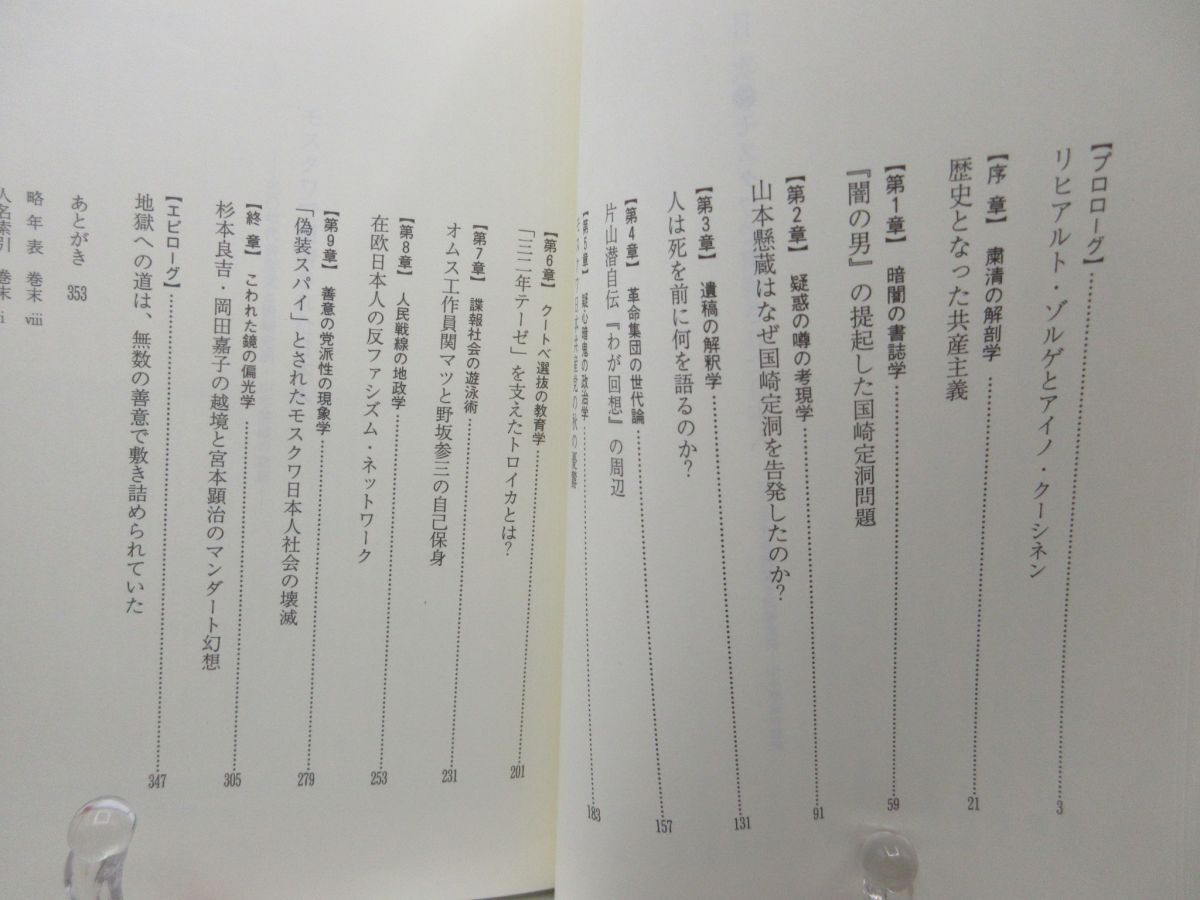 【プロローグ】 3
リヒアルト・ゾルゲとアイノ・クーシネン
【序 章】 粛清の解剖学 21
歴史となった共産主義
【第1章】 暗闇の書誌学 59
『闇の男』の提起した国崎定洞問題
【第2章】 疑惑の噂の考現学 91
山本懸蔵はなぜ国崎定洞を告発したのか?
【第3章】 遺稿の解釈学 131
人は死を前に何を語るのか?
【第4章】 革命集団の世代論 157
片山潜自伝『わが回想』の周辺
【第5章】 疑心暗鬼の政治学 183
日本共産党の秋の憂鬱
【第6章】 クートベ選抜の教育学 201
「三二年テーゼ」を支えたトロイカとは?
【第7章】 諜報社会の遊泳術 231
オムス工作員関マツと野坂参三の自己保身
【第8章】 人民戦線の地政学 253
在欧日本人の反ファシズム・ネットワーク
【第9章】 善意の党派性の現象学 279
「偽装スパイ」とされたモスクワ日本人社会の壊滅
【終 章】 こわれた鏡の偏光学 305
杉本良吉・岡田嘉子の越境と宮本顕治のマンダート幻想
【エピローグ】 347
地獄への道は、無数の善意で敷き詰められていた
あとがき 353
略年表 巻末 viii
人名索引 巻末 i